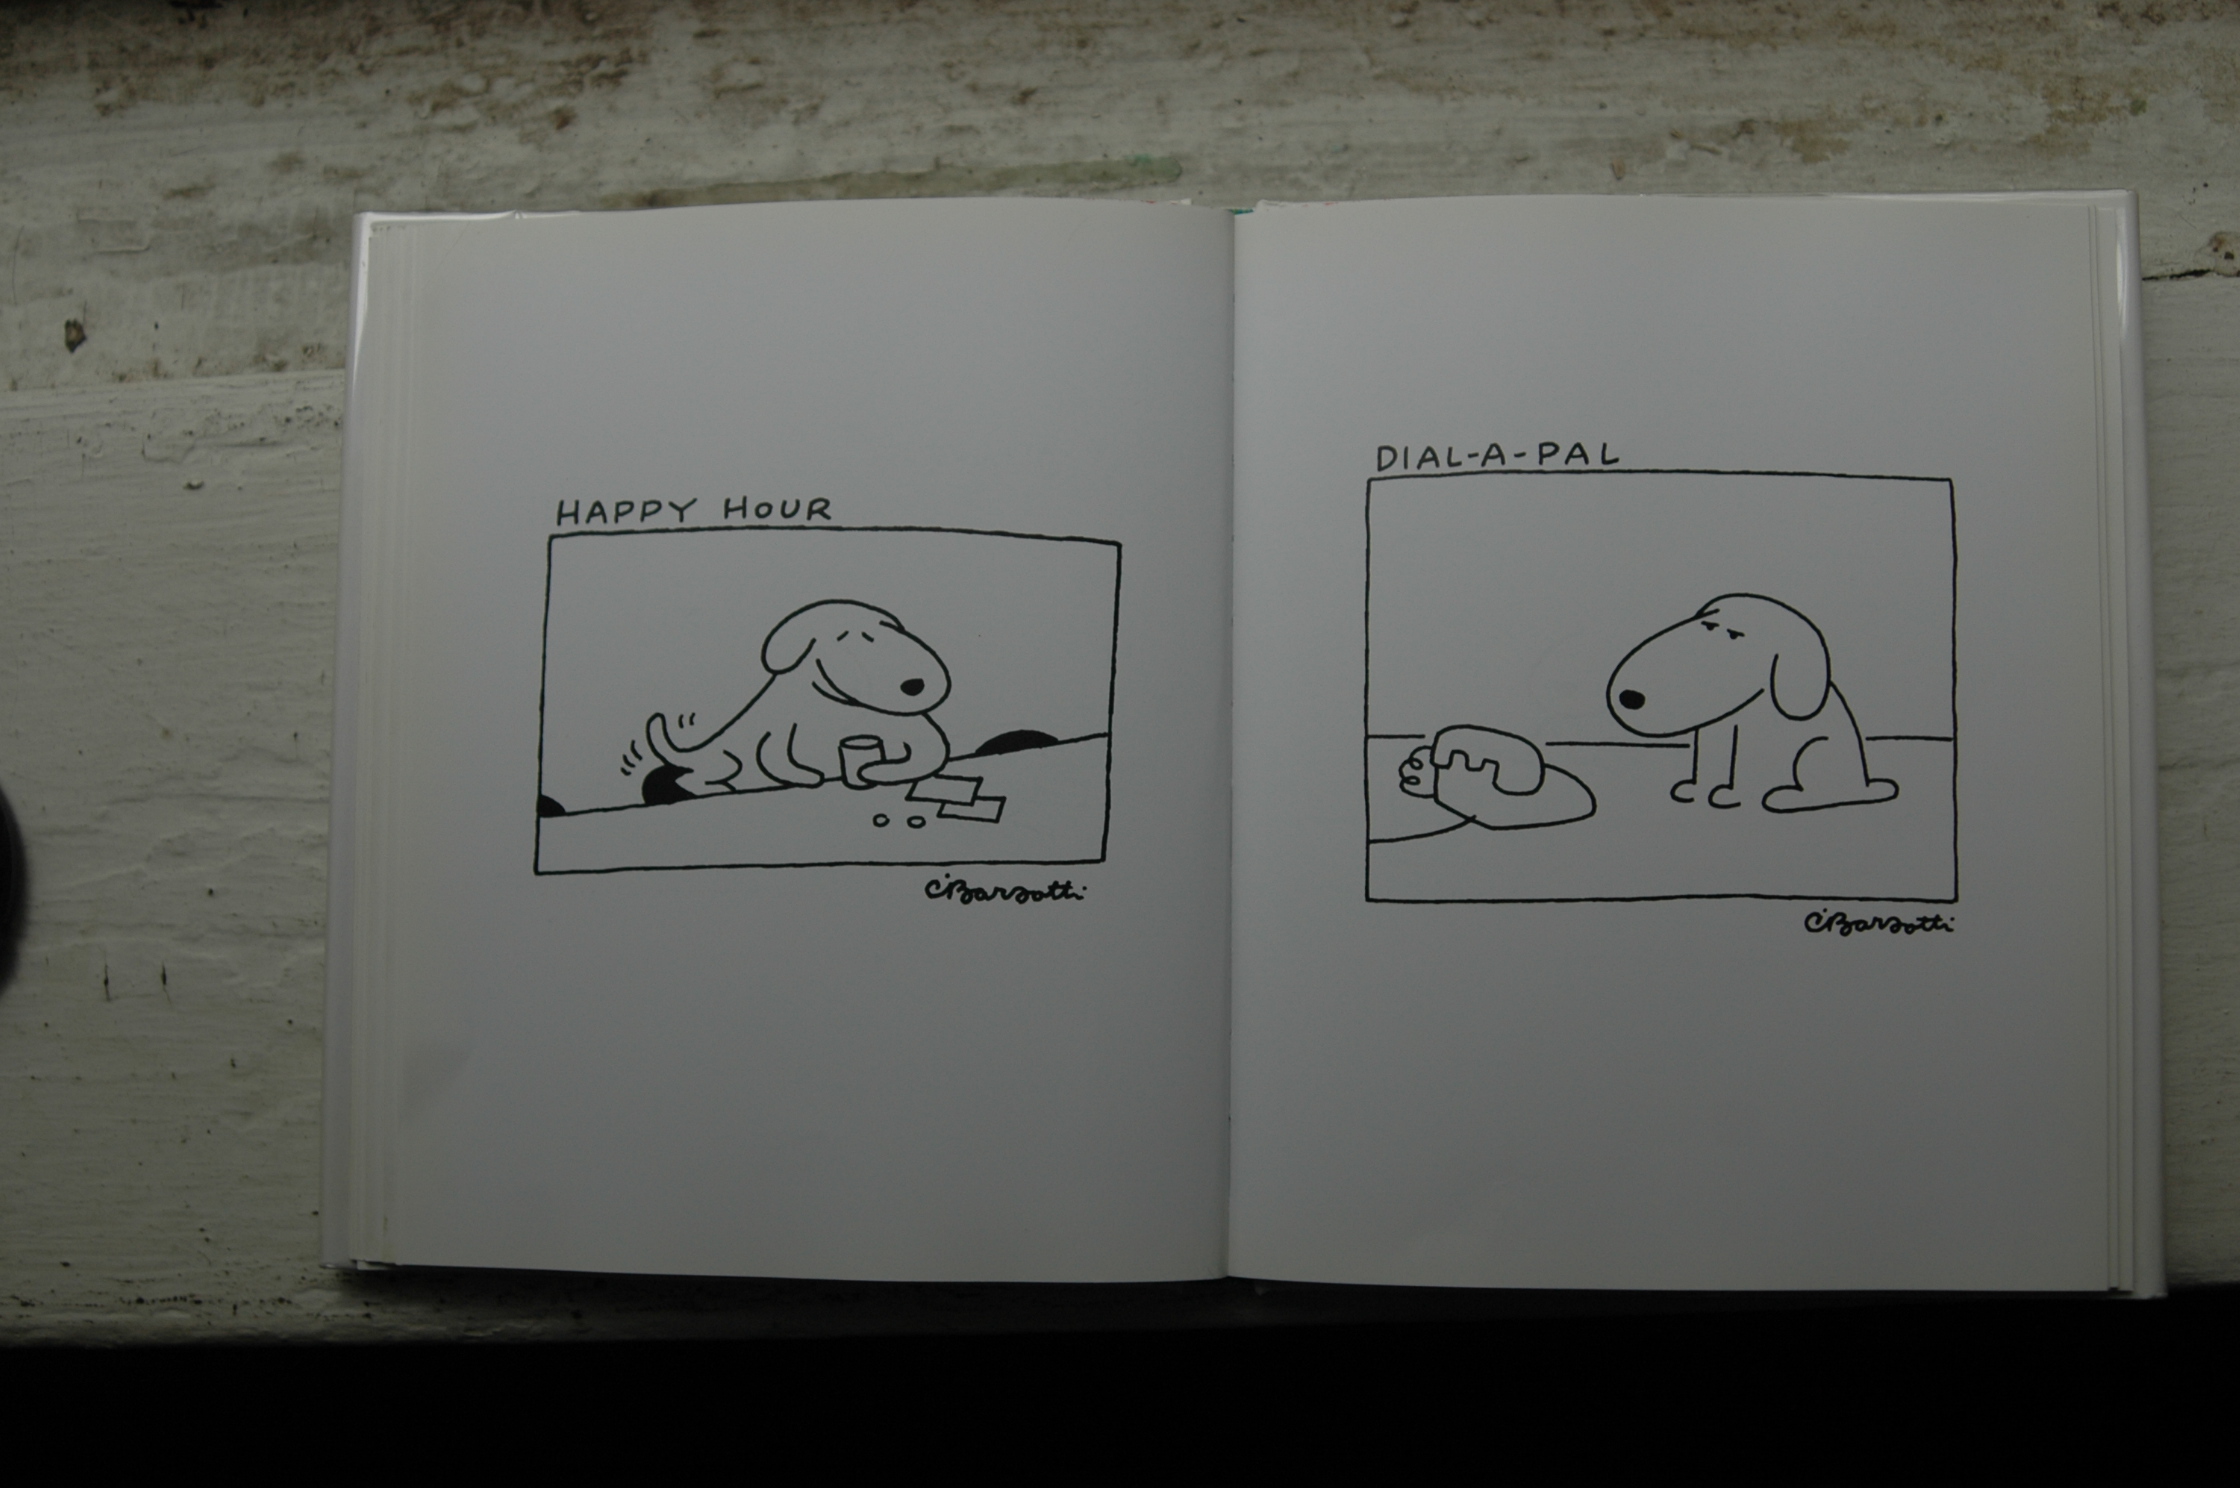 HAPPY HOUR
C. Barsotti
DIAL-A-PAL
C. Barsotti